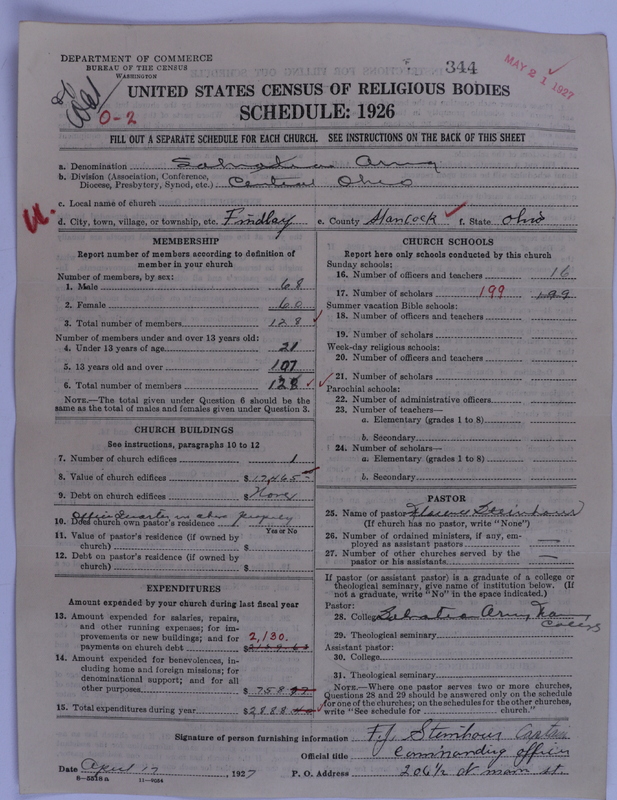 DEPARTMENT OF COMMERCE
BUREAU OF THE CENSUS
WASHINGTON
344
MAY 21 1927
O-2
UNITED STATES CENSUS OF RELIGIOUS BODIES
SCHEDULE: 1926
FILL OUT A SEPARATE SCHEDULE FOR EACH CHURCH. SEE INSTRUCTIONS ON THE BACK OF THIS SHEET
a. Denomination Salvation Army
b. Division (Association, Conference,
Diocese, Presbytery, Synod, etc.) Central Ohio
c. Local name of church
U.
d. City, town, village, or township, etc. Findlay e. County Hancock f. State Ohio
MEMBERSHIP
Report number of members according to definition of
member in your church
Number of members, by sex:
1. Male 68
2. Female 60
3. Total number of members 128
Number of members under and over 13 years old:
4. Under 13 years of age 21
5. 13 years old and over 107
6. Total number of members 128
NOTE.—The total given under Question 6 should be the
same as the total of males and females given under Question 3.
CHURCH BUILDINGS
See instructions, paragraphs 10 to 12
7. Number of church edifices 1
8. Value of church edifices $17,465
9. Debt on church edifices $None
Officers Quarters in above property
10. Does church own pastor's residence
Yes or No
11. Value of pastor's residence (if owned by
church) $
12. Debt on pastor's residence (if owned by
church) $
EXPENDITURES
Amount expended by your church during last fiscal year
13. Amount expended for salaries, repairs,
and other running expenses; for im-
provements or new buildings; and for 2,130.
payments on church debt $
14. Amount expended for benevolences, in-
cluding home and foreign missions; for
denominational support; and for all
other purposes $758
15. Total expenditures during year $2888
CHURCH SCHOOLS
Report here only schools conducted by this church
Sunday schools:
16. Number of officers and teachers 16
17. Number of scholars 199 199
Summer vacation Bible schools:
18. Number of officers and teachers
19. Number of scholars
Week-day religious schools:
20. Number of officers and teachers
21. Number of scholars
Parochial schools:
22. Number of administrative officers
23. Number of teachers—
a. Elementary (grades 1 to 8)
b. Secondary
24. Number of scholars—
a. Elementary (grades 1 to 8)
b. Secondary
PASTOR
25. Name of pastor
(If church has no pastor, write "None")
26. Number of ordained ministers, if any, em-
ployed as assistant pastors —
27. Number of other churches served by the
pastor or his assistants —
If pastor (or assistant pastor) is a graduate of a college or
theological seminary, give name of institution below. (If
not a graduate, write "No" in the space indicated.)
Pastor:
28. College Salvation Army
29. Theological seminary
Assistant pastor:
30. College
31. Theological seminary
NOTE.—Where one pastor serves two or more churches,
Questions 28 and 29 should be answered only on the schedule
for one of the churches; on the schedules for the other churches,
write "See schedule for church."
Signature of person furnishing information F. J. Captain
Official title Commanding officer
Date April 17, 1927 P. O. Address 206½ N main st.
8-5518 a 11-9054